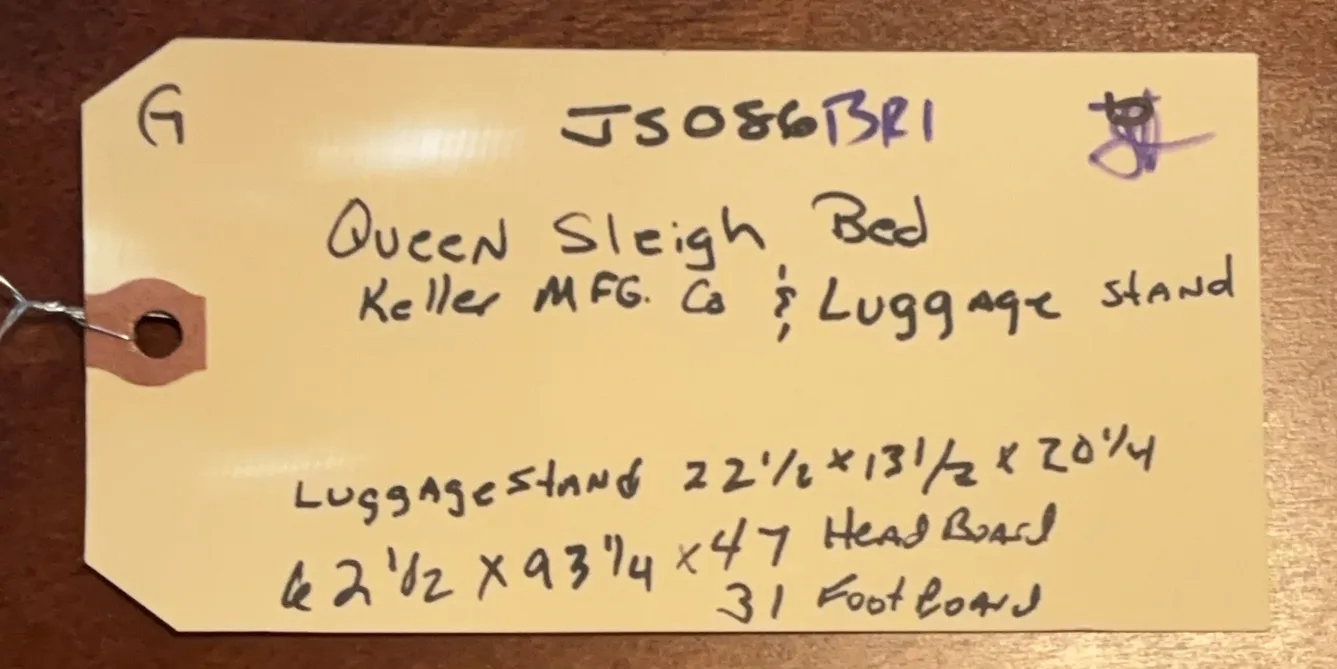 G
JS086BR1
Queen Sleigh Bed
Keller MFG. Co & Luggage Stand
Luggage Stand 22 1/2 x 13 1/2 x 20 1/4
62 1/2 x 93 1/4 x 47 HeadBoard
31 FootBoard